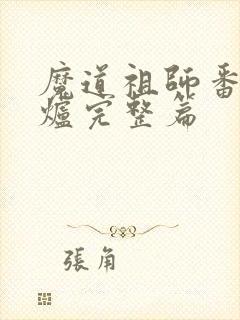 魔道祖師番
爐完整篇
張角